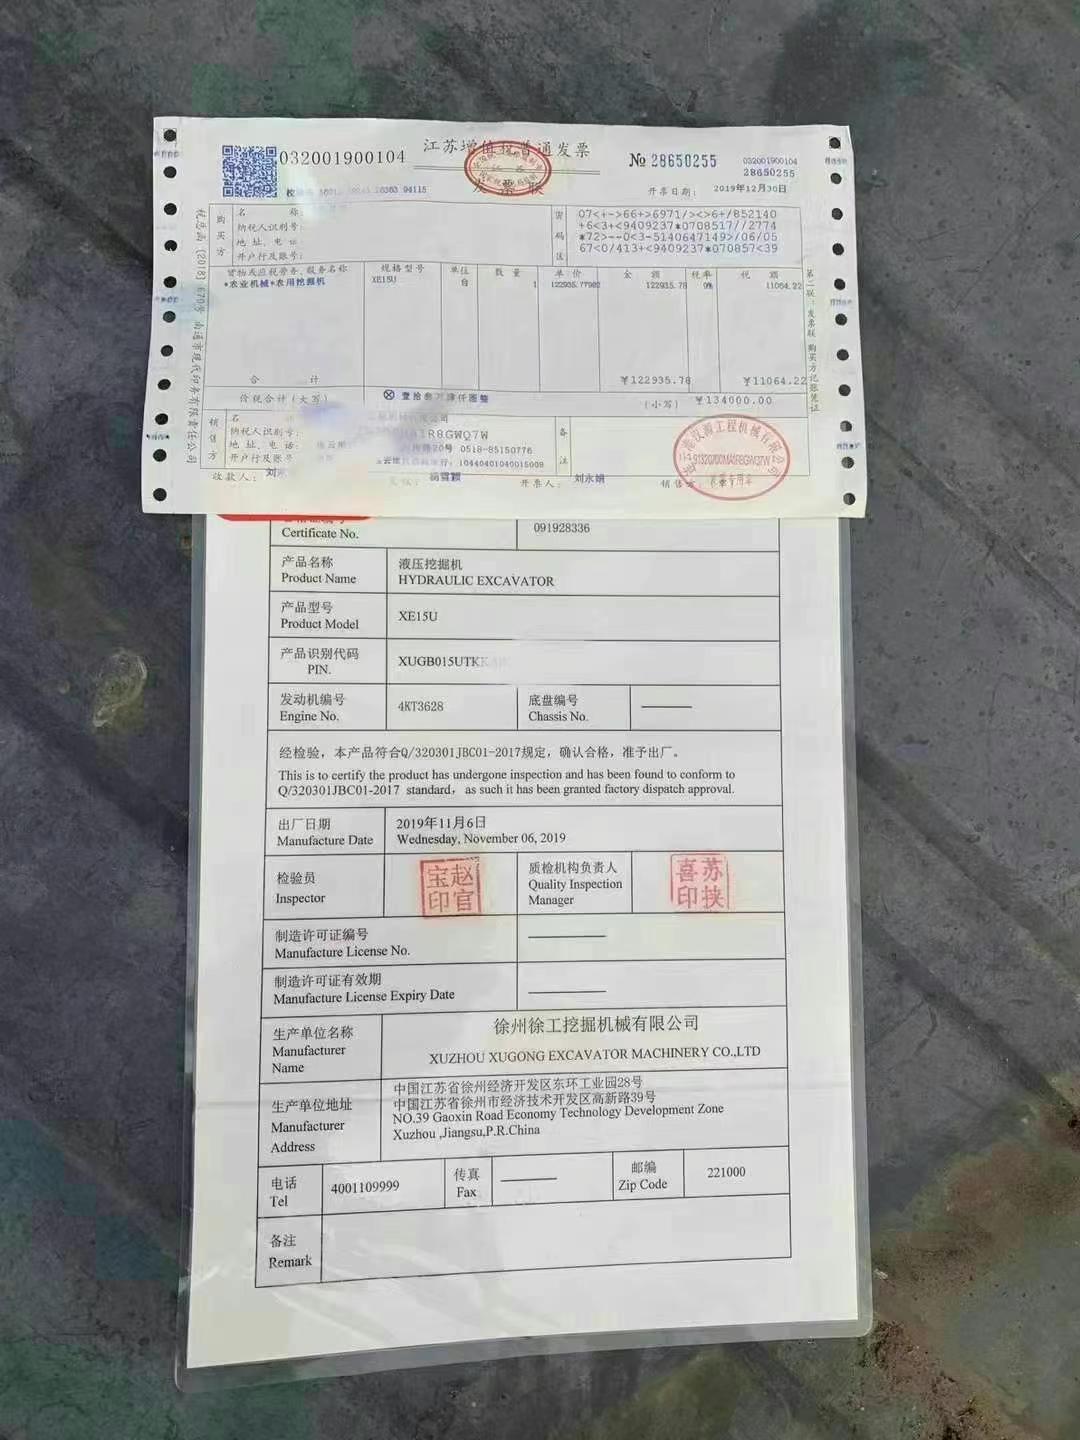 032001900104
江苏增值税普通发票
发票联
№ 28650255
032001900104
28650255
开票日期： 2019年12月30日
94115
税总函〔2018〕670号 南通市现代印务有限责任公司
购买方
名 称：
纳税人识别号：
地 址、电 话：
开户行及账号：
密码区
07<+->66+>6971/><>6+/852140
+6<3+<9409237*0708517//2774
*72>--0<3-5140647149>/06/05
67<0/413+<9409237*070857<39
货物或应税劳务、服务名称 规格型号 单位 数 量 单 价 金 额 税率 税 额
*农业机械*农用挖掘机 XE15U 台 1 122935.77982 122935.78 9% 11064.22
合 计 ¥122935.78 ¥11064.22
价税合计（大写） ⊗壹拾叁万肆仟圆整 （小写） ¥134000.00
第二联：发票联 购买方记账凭证
销售方
名
纳税人识别号：
R8GWQ7W
地 址、电 话：
20号 0518-85150776
开户行及账号
10440401040015008
备注
收款人： 刘
杨雪颖
开票人： 刘永娟
销售方：
工程机械有限公司
发票专用章
Certificate No. 091928336
产品名称 液压挖掘机
Product Name HYDRAULIC EXCAVATOR
产品型号
Product Model XE15U
产品识别代码
PIN. XUGB015UTK
发动机编号
Engine No. 4KT3628
底盘编号
Chassis No. ———
经检验，本产品符合Q/320301JBC01-2017规定，确认合格，准予出厂。
This is to certify the product has undergone inspection and has been found to conform to
Q/320301JBC01-2017 standard，as such it has been granted factory dispatch approval.
出厂日期 2019年11月6日
Manufacture Date Wednesday, November 06, 2019
检验员
Inspector
赵官宝印
质检机构负责人
Quality Inspection
Manager
苏挟喜印
制造许可证编号
Manufacture License No. ———
制造许可证有效期
Manufacture License Expiry Date ———
生产单位名称
Manufacturer
Name
徐州徐工挖掘机械有限公司
XUZHOU XUGONG EXCAVATOR MACHINERY CO.,LTD
生产单位地址
Manufacturer
Address
中国江苏省徐州经济开发区东环工业园28号
中国江苏省徐州市经济技术开发区高新路39号
NO.39 Gaoxin Road Economy Technology Development Zone
Xuzhou ,Jiangsu,P.R.China
电话
Tel 4001109999
传真
Fax ———
邮编
Zip Code 221000
备注
Remark